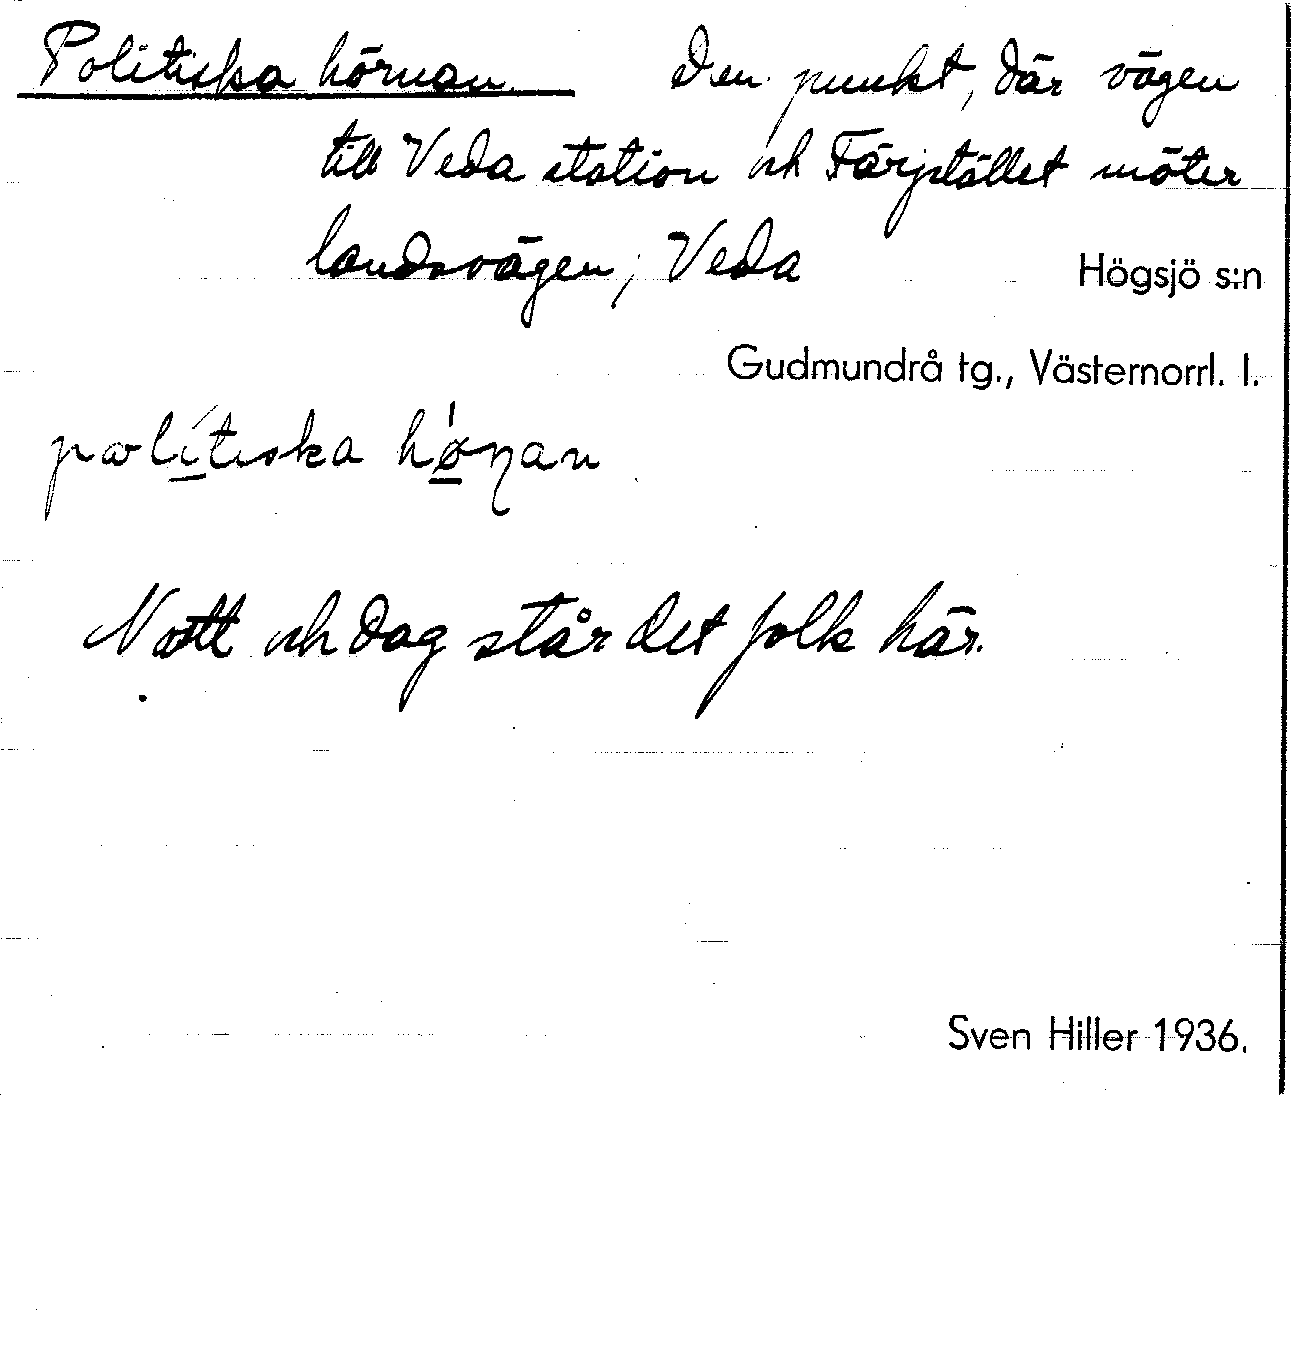 Politiska hörnan Den punkt, där vägen
till Veda station och Färjstället möter
landsvägen, Veda
Högsjö s:n
Gudmundrå tg., Västernorrl. l.
pωlítiska hǿ̱ɳan
Natt och dag står det folk här.
Sven Hiller 1936.